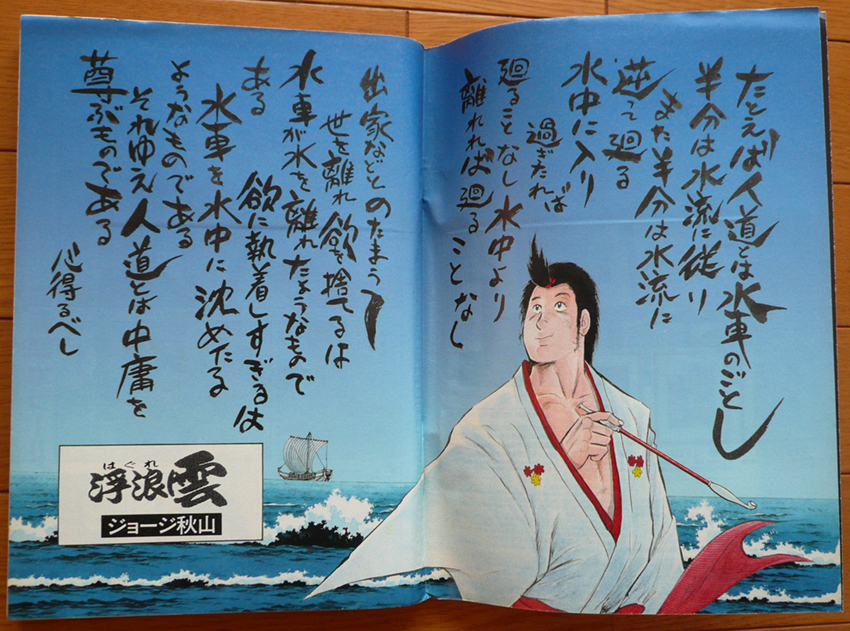 たとえば人道とは水車のごとし
半分は水流に従り
また半分は水流に
逆って廻る
水中に入り
過ぎたれば
廻ることなし水中より
離れれば廻ることなし
出家などとのたまう
世を離れ欲を捨てるは
水車が水を離れたようなもので
ある
欲に執着しすぎるは
水車を水中に沈めたる
ようなものである
それゆえ人道とは中庸を
尊ぶものである
心得るべし
はぐれ
浮浪雲
ジョージ秋山